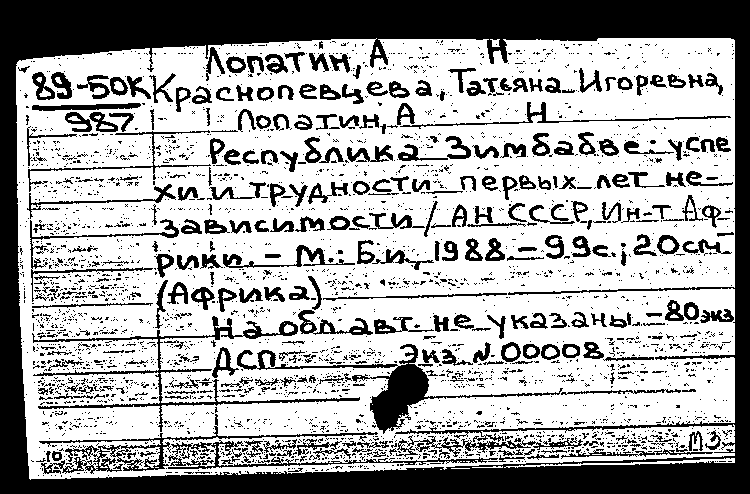 Лопатин, А Н
89-50К Краснопевцева, Татьяна Игоревна,
987 Лопатин, А Н
Республика Зимбабве: успе
хи и трудности первых лет не-
зависимости / АН СССР, Ин-т Аф-
рики. - М.: Б.и., 1988. - 99с.; 20см
(Африка)
На обл. авт. не указаны. - 80 экз
ДСП. Экз. N 00008
10 МЗ